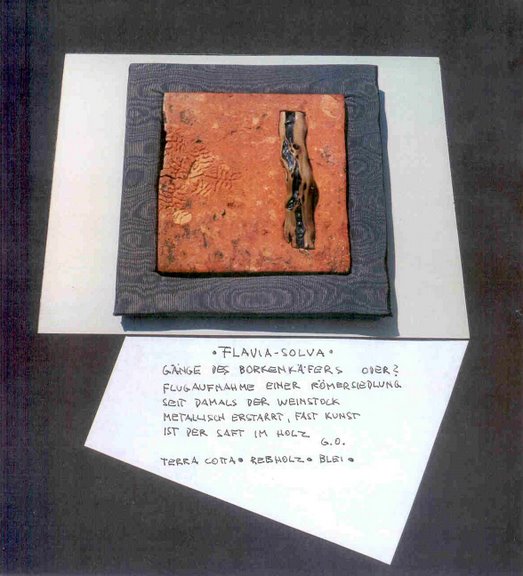 • FLAVIA-SOLVA •
GÄNGE DES BORKENKÄFERS ODER?
FLUGAUFNAHME EINER RÖMERSIEDLUNG
SEIT DAMALS DER WEINSTOCK
METALLISCH ERSTARRT, FAST KUNST
IST DER SAFT IM HOLZ
G.O.
TERRA COTTA • REBHOLZ • BLEI •